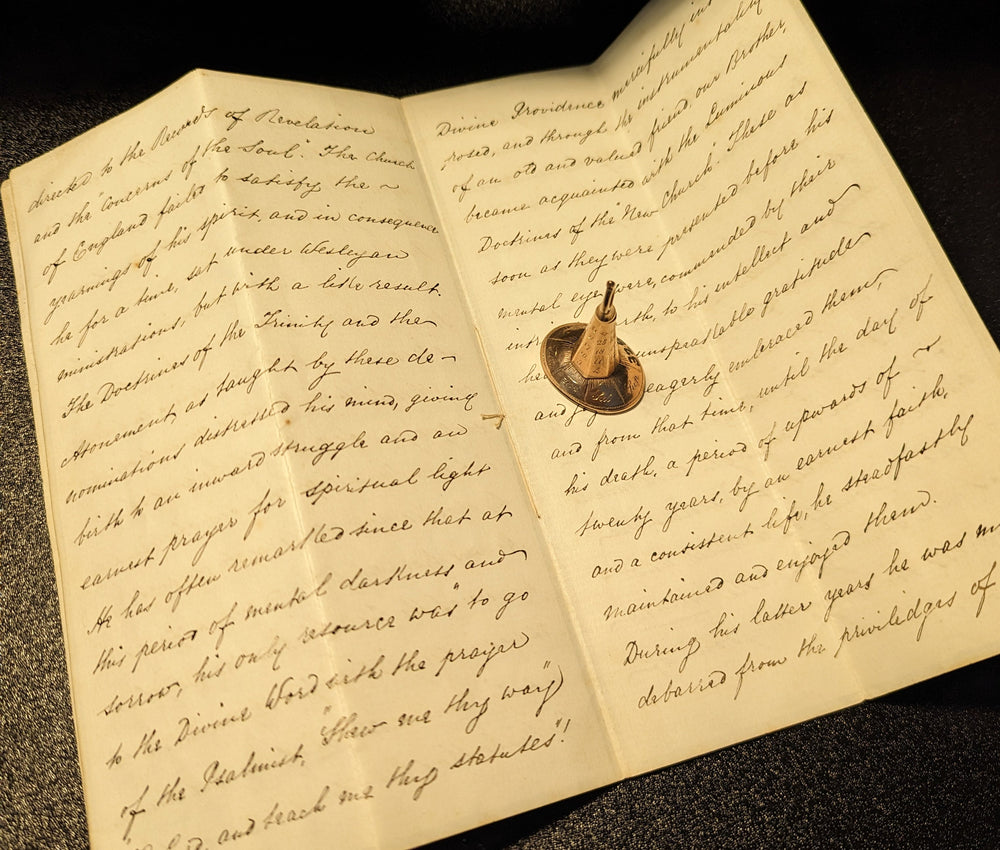 directed to the Records of Revelation
and the "concerns of the Soul". The Church
of England failed to satisfy the ~
yearnings of his spirit, and in consequence
he for a time, sat under Wesleyan
ministrations, but with a like result.
The Doctrines of the Trinity and the
Atonement, as taught by these de-
nominations distressed his mind, giving
birth to an inward struggle and an
earnest prayer for spiritual light
He has often remarked since that at
this period of mental darkness and
sorrow, his only resource was "to go
to the Divine Word with the prayer
of the Psalmist, "Shew me thy way)
and teach me thy statutes"!
Divine Providence mercifully
posed, and through the instrumentality
of an old and valued friend, our Brother,
became acquainted with the Luminous
Doctrines of the "New Church". These as
soon as they were presented before his
mental eye were, commended by their
to his intellect and
unspeakable gratitude
eagerly embraced them,
and from that time, until the day of
his death, a period of upwards of ~
twenty years, by an earnest faith,
and a consistent life, he steadfastly
maintained and enjoyed them.
During his latter years he was
debarred from the priviledges of